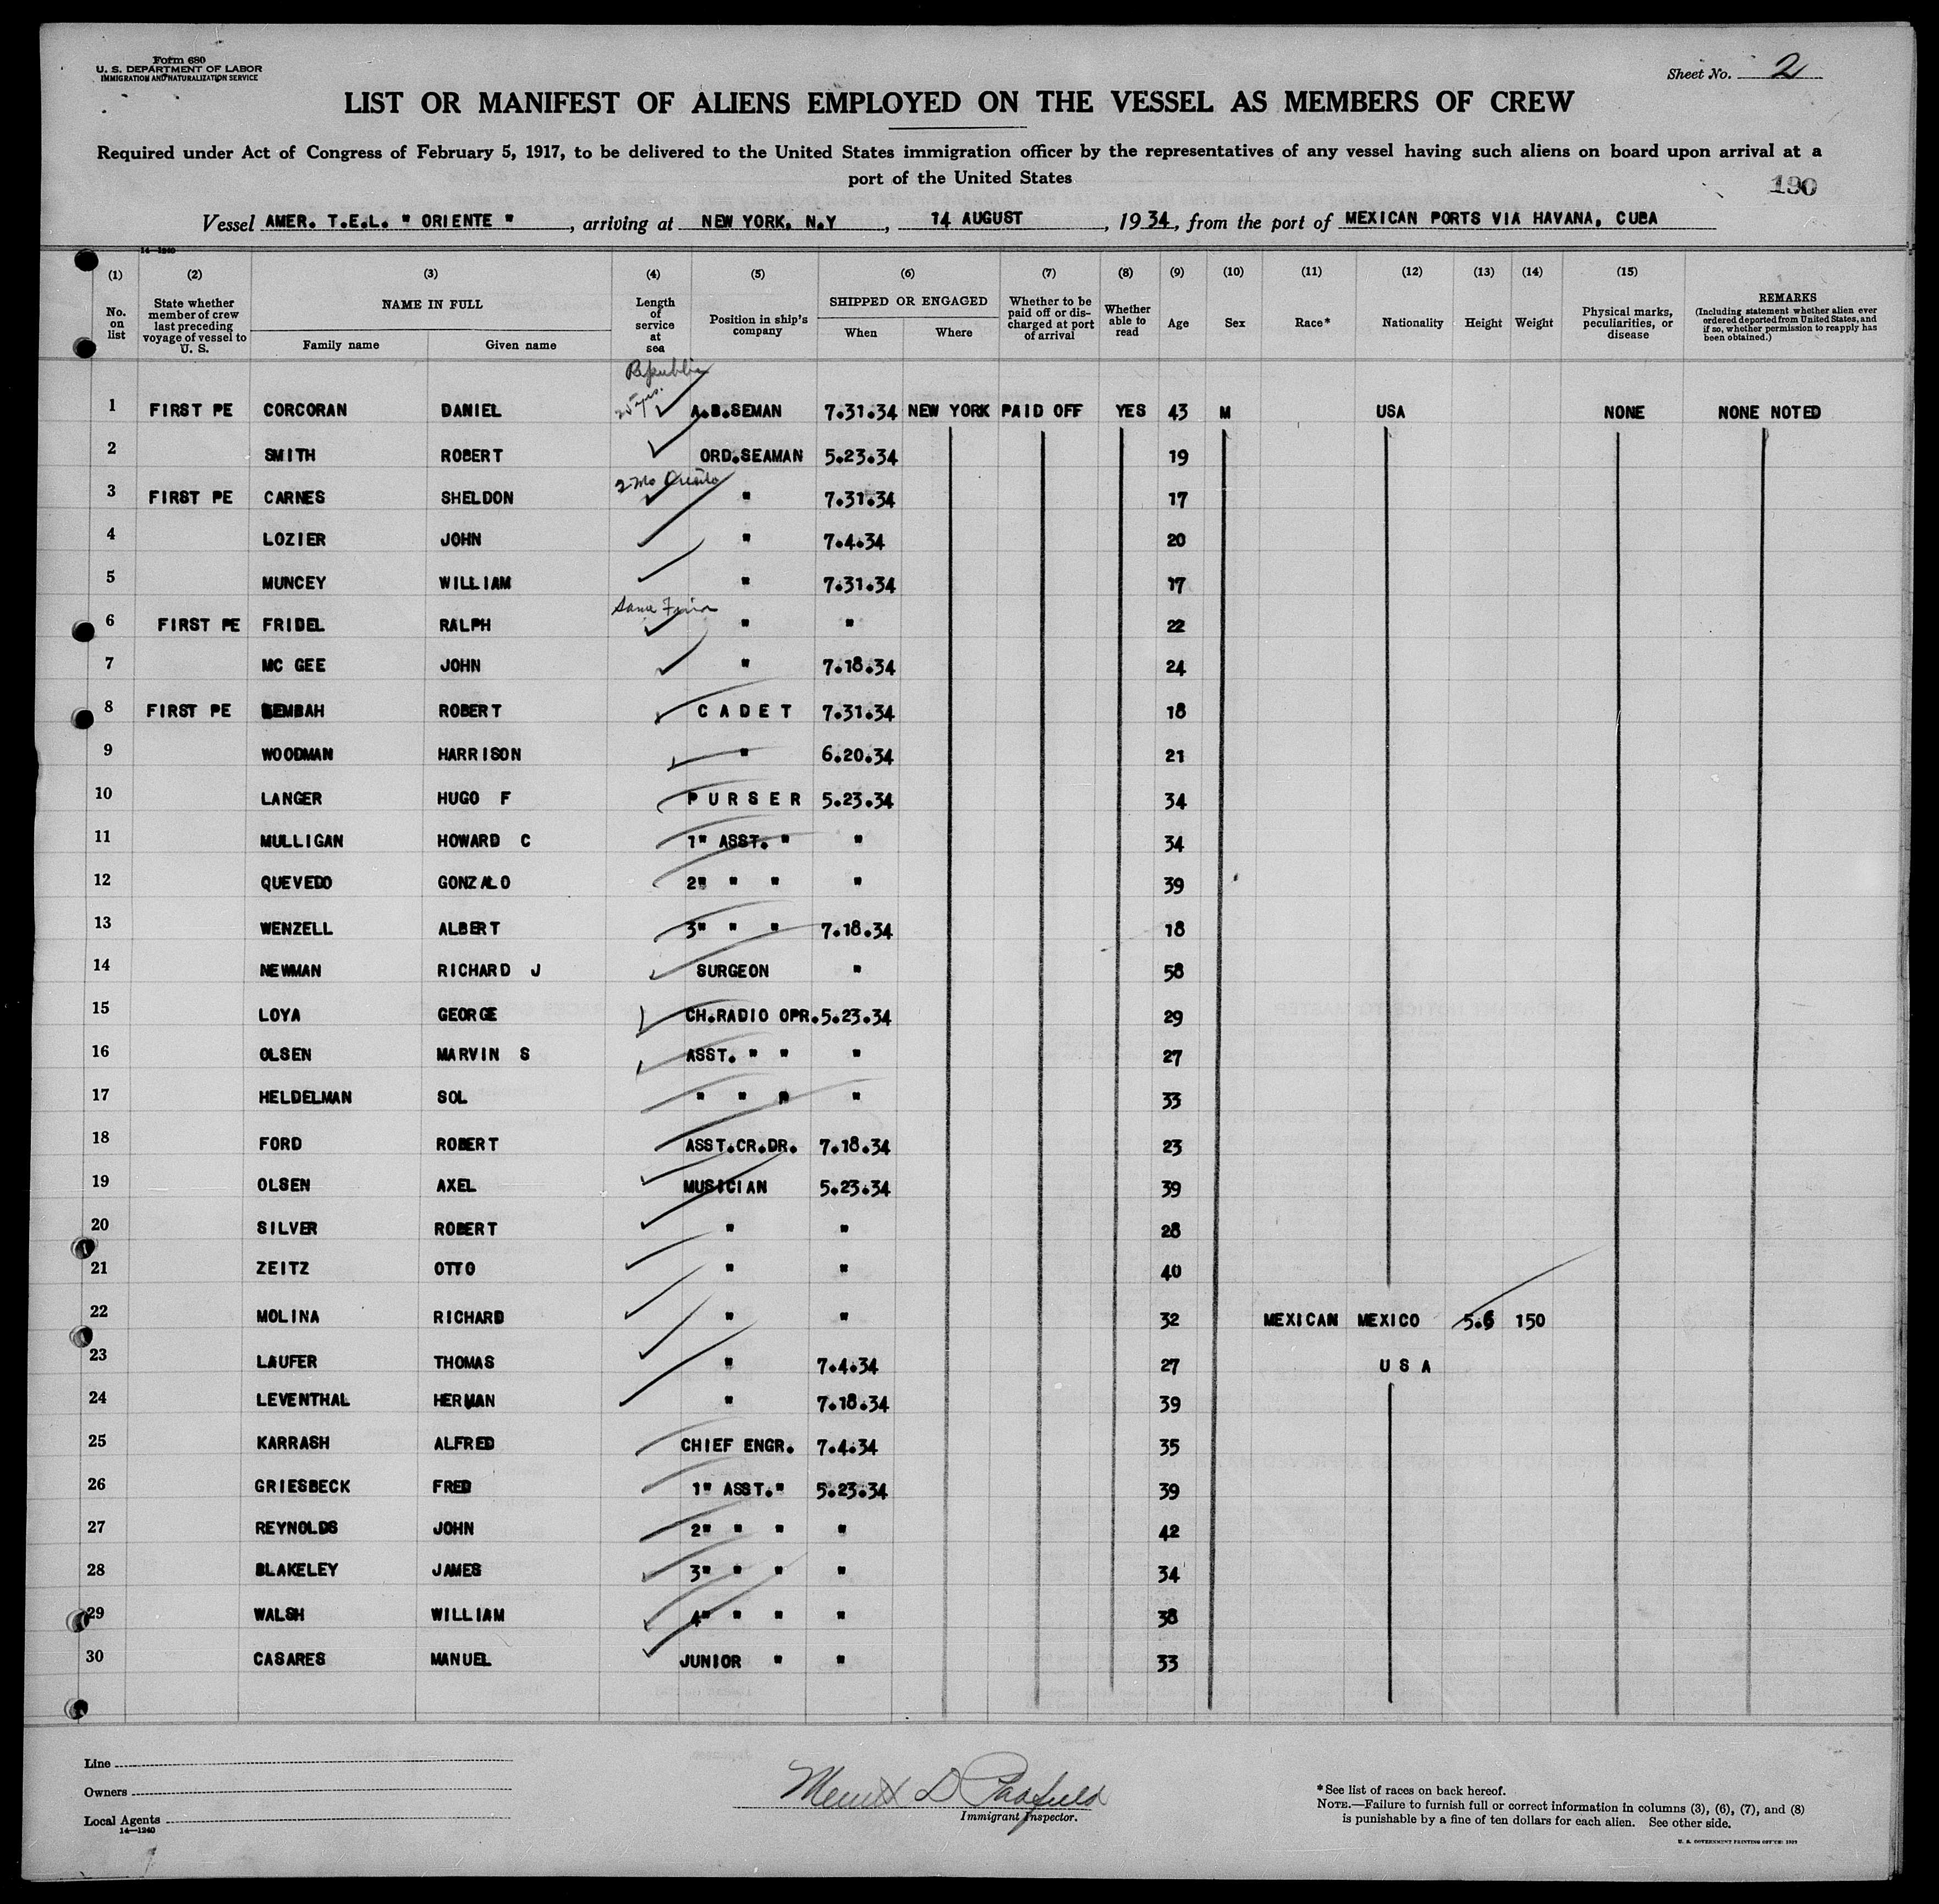 Form 680
U. S. DEPARTMENT OF LABOR
IMMIGRATION AND NATURALIZATION SERVICE
Sheet No. 2
LIST OR MANIFEST OF ALIENS EMPLOYED ON THE VESSEL AS MEMBERS OF CREW
Required under Act of Congress of February 5, 1917, to be delivered to the United States immigration officer by the representatives of any vessel having such aliens on board upon arrival at a
port of the United States
190
Vessel AMER. T.E.L. " ORIENTE ", arriving at NEW YORK, N.Y, 14 AUGUST, 1934, from the port of MEXICAN PORTS VIA HAVANA, CUBA
14—1240
(1) (2) (3) (4) (5) (6) (7) (8) (9) (10) (11) (12) (13) (14) (15)
No. on list State whether member of crew last preceding voyage of vessel to U. S. NAME IN FULL Family name Given name Length of service at sea Position in ship's company SHIPPED OR ENGAGED When Where Whether to be paid off or discharged at port of arrival Whether able to read Age Sex Race* Nationality Height Weight Physical marks, peculiarities, or disease REMARKS (Including statement whether alien ever ordered deported from United States, and if so, whether permission to reapply has been obtained.)
Republic
1 FIRST PE CORCORAN DANIEL 25 yrs. A.B.SEMAN 7.31.34 NEW YORK PAID OFF YES 43 M USA NONE NONE NOTED
2 SMITH ROBERT ORD.SEAMAN 5.23.34 19
3 FIRST PE CARNES SHELDON 2 Mo Oriente " 7.31.34 17
4 LOZIER JOHN " 7.4.34 20
5 MUNCEY WILLIAM " 7.31.34 17
6 FIRST PE FRIDEL RALPH Same " " 22
7 MC GEE JOHN " 7.18.34 24
8 FIRST PE ROBERT CADET 7.31.34 18
9 WOODMAN HARRISON " 6.20.34 21
10 LANGER HUGO F PURSER 5.23.34 34
11 MULLIGAN HOWARD C 1" ASST. " " 34
12 QUEVEDO GONZALO 2" " " " 39
13 WENZELL ALBERT 3" " " 7.18.34 18
14 NEWMAN RICHARD J SURGEON " 58
15 LOYA GEORGE CH.RADIO OPR. 5.23.34 29
16 OLSEN MARVIN S ASST. " " " 27
17 HELDELMAN SOL " " " " 33
18 FORD ROBERT ASST.CR.DR. 7.18.34 23
19 OLSEN AXEL MUSICIAN 5.23.34 39
20 SILVER ROBERT " " 28
21 ZEITZ OTTO " " 40
22 MOLINA RICHARD " " 32 MEXICAN MEXICO 5.6 150
23 LAUFER THOMAS " 7.4.34 27 USA
24 LEVENTHAL HERMAN " 7.18.34 39
25 KARRASH ALFRED CHIEF ENGR. 7.4.34 35
26 GRIESBECK FRED 1" ASST." 5.23.34 39
27 REYNOLDS JOHN 2" " " " 42
28 BLAKELEY JAMES 3" " " " 34
29 WALSH WILLIAM 4" " " " 38
30 CASARES MANUEL JUNIOR " " 33
Line
Owners
Local Agents
14—1240
Merritt D
Immigrant Inspector.
*See list of races on back hereof.
NOTE.—Failure to furnish full or correct information in columns (3), (6), (7), and (8)
is punishable by a fine of ten dollars for each alien. See other side.
U. S. GOVERNMENT PRINTING OFFICE: 1929